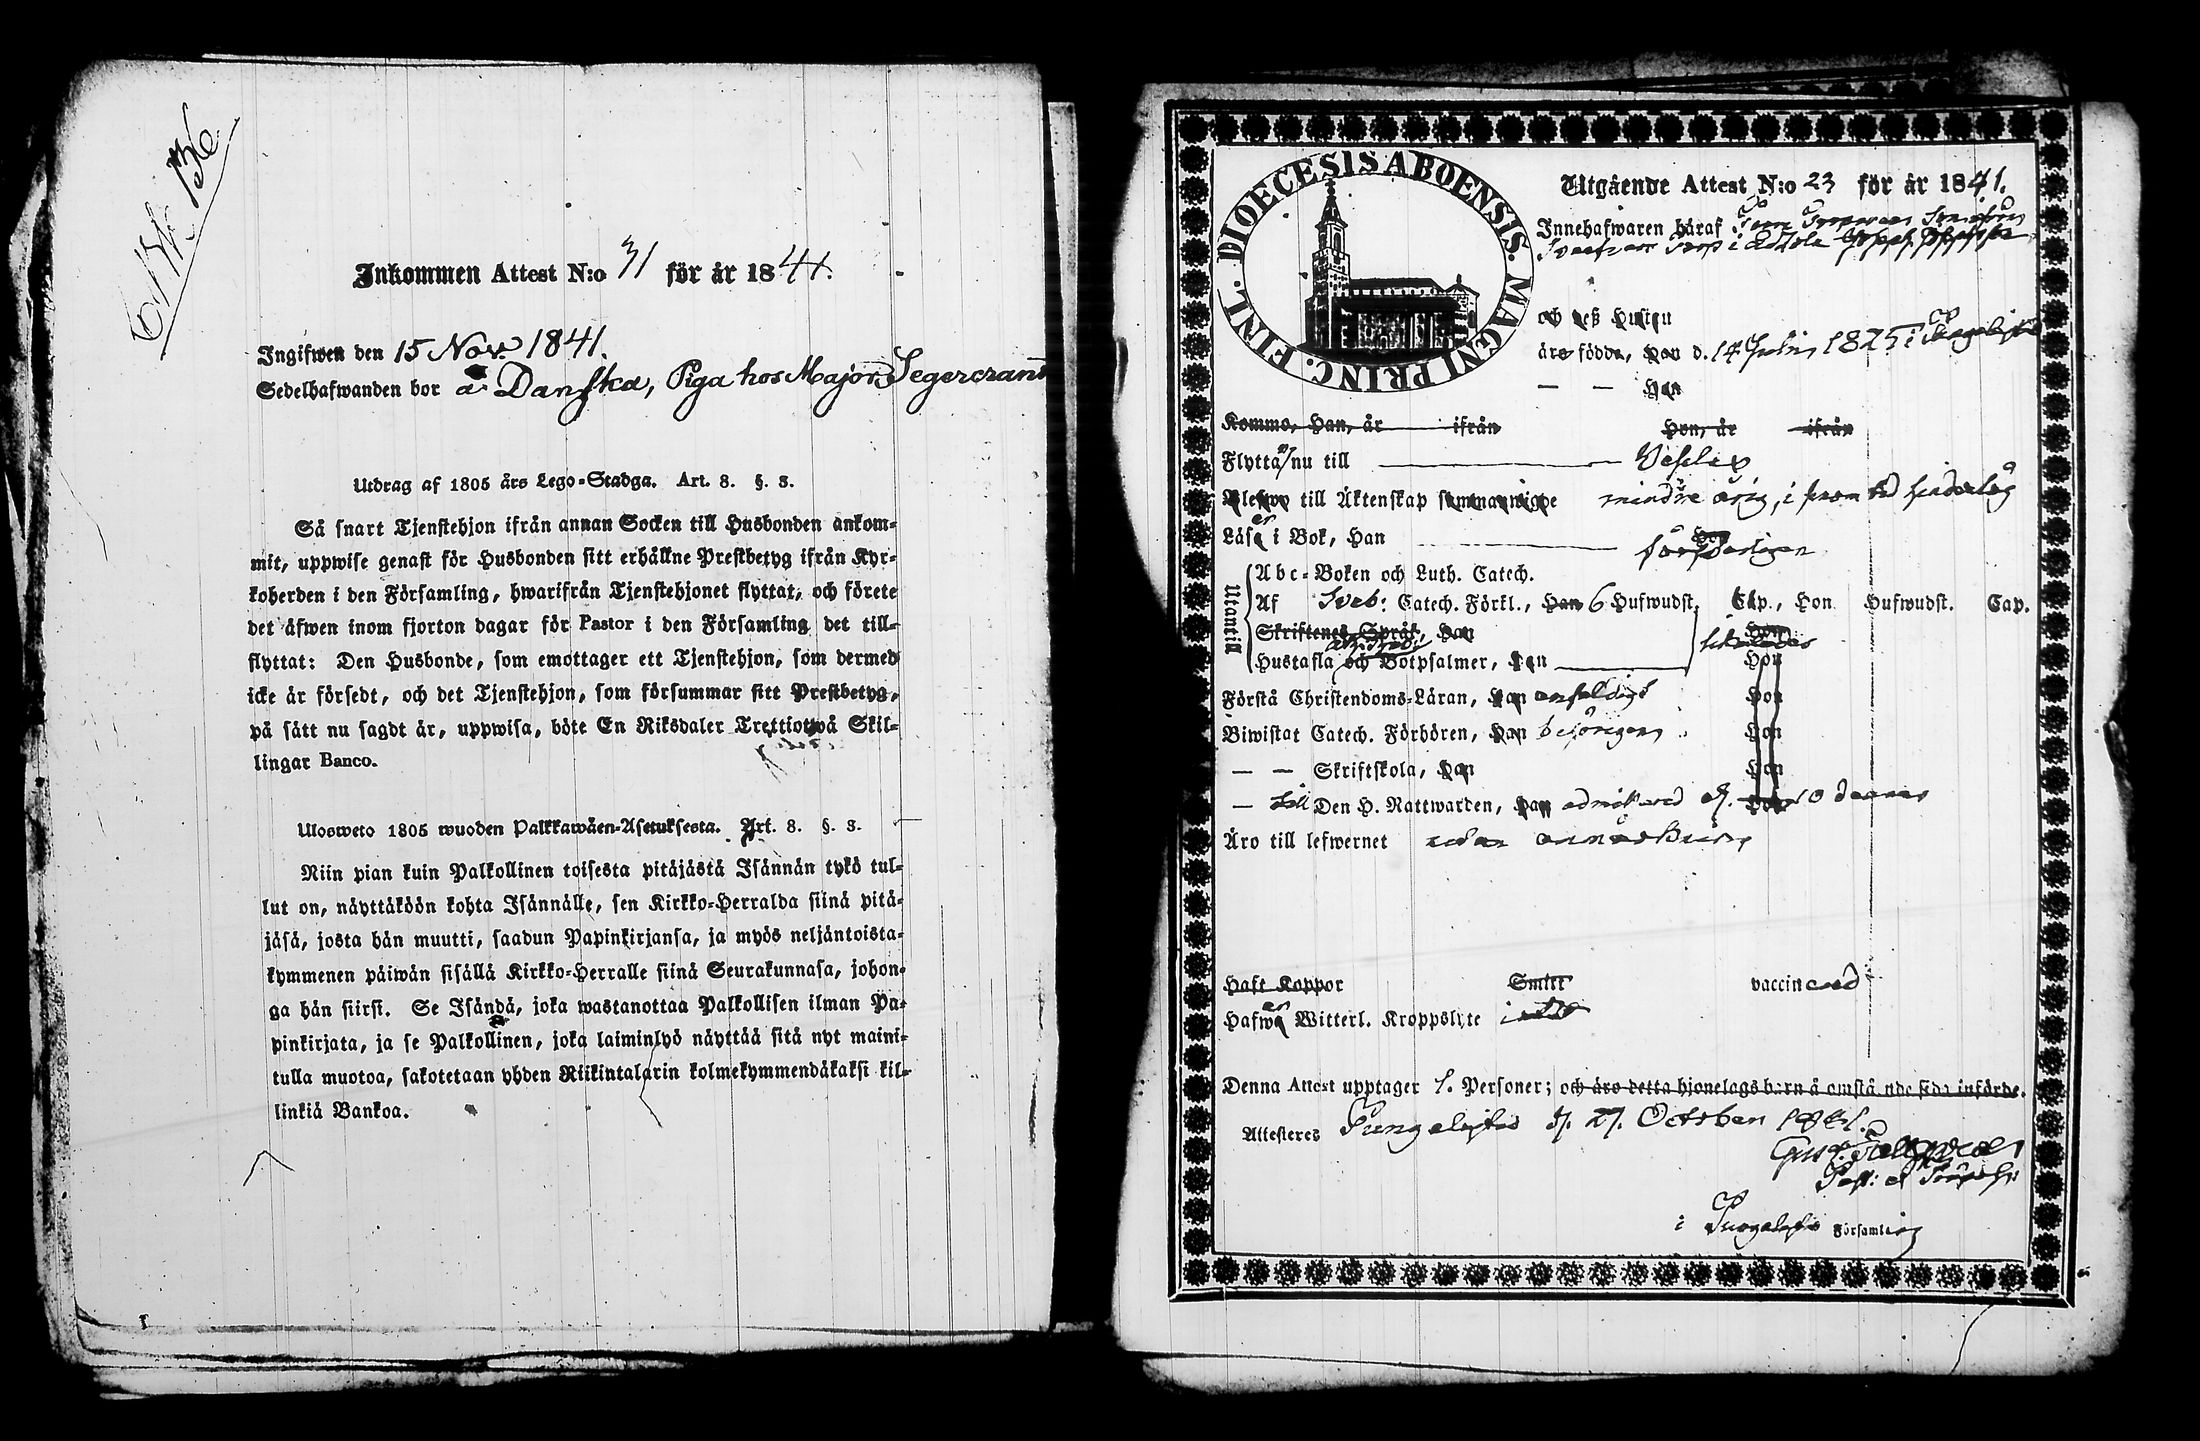 136
Inkommen Attest N:o 31 för år 1841.
Ingifwen den 15 Nov. 1841.
Sedelhafwanden bor å Danska, Piga hos Major Segercrantz
Utdrag af 1805 års Lego-Stadga. Art. 8. §. 3.
Så snart Tjenstehjon ifrån annan Socken till Husbonden ankom-
mit, uppwise genast för Husbonden sitt erhållne Prestbetyg ifrån Kyr-
koherden i den Församling, hwarifrån Tjenstehjonet flyttat, och förete
det äfwen inom fjorton dagar för Pastor i den Församling det till-
flyttat: Den Husbonde, som emottager ett Tjenstehjon, som dermed
icke är försedt, och det Tjenstehjon, som försummar sitt Prestbetyg,
på sätt nu sagdt är, uppwisa, böte En Riksdaler Trettiotwå Skil-
lingar Banco.
Ulosweto 1805 wuoden Palkkawäen-Asetuksesta. Art. 8. §. 3.
Niin pian kuin Palkollinen toisesta pitäjästä Isännän tykö tul-
lut on, näyttäköön kohta Isännälle, sen Kirkko-Herralda siinä pitä-
jäsä, josta hän muutti, saadun Papinkirjansa, ja myös neljäntoista-
kymmenen päiwän sisällä Kirkko-Herralle siinä Seurakunnasa, johon-
ga hän siirsi. Se Isändä, joka wastanottaa Palkollisen ilman Pa-
pinkirjata, ja se Palkollinen, joka laiminlyö näyttää sitä nyt maini-
tulla muotoa, sakotetaan yhden Riikintalarin kolmekymmendäkaksi kil-
linkiä Bankoa.
DIOECESIS ABOENSIS. MAGNI PRINC. FINL.
Utgående Attest N:o 23 för år 1841.
Innehafwaren häraf
och deß Hustru
äro födde, Han d. 14 Julii 1825 i
— — Hon
Komme, Han, år ifrån Hon, år ifrån
Flytta/nu till
Blefwo till Äktenskap sammanwigde mindre årig, i
Läsa er i Bok, Han försvarligen
Utantill
Abc-Boken och Luth. Catech.
Af Sveb: Catech. Förkl., Han 6 Hufwudst. Cap., Hon Hufwudst. Cap.
Skriftenes Språk, Han Hon
Hustafla och Botpsalmer, Han Hon
likaledes
Förstå Christendoms-Läran, Han enfaldigt Hon
Biwistat Catech. Förhören, Han behörigen Hon
— — Skriftskola, Han Hon
— till Den H. Nattwarden, Han admitterad d. Hon 10 dennes
Äro till lefwernet utan anmärkning
Haft Koppor Smitt vaccinerad
Hafwa er Witterl. Kroppslyte intet
Denna Attest upptager 1. Personer; och äro detta hjonelags barn å omstående sida införde.
Attesteres d. 27. October 1841.
i Församling